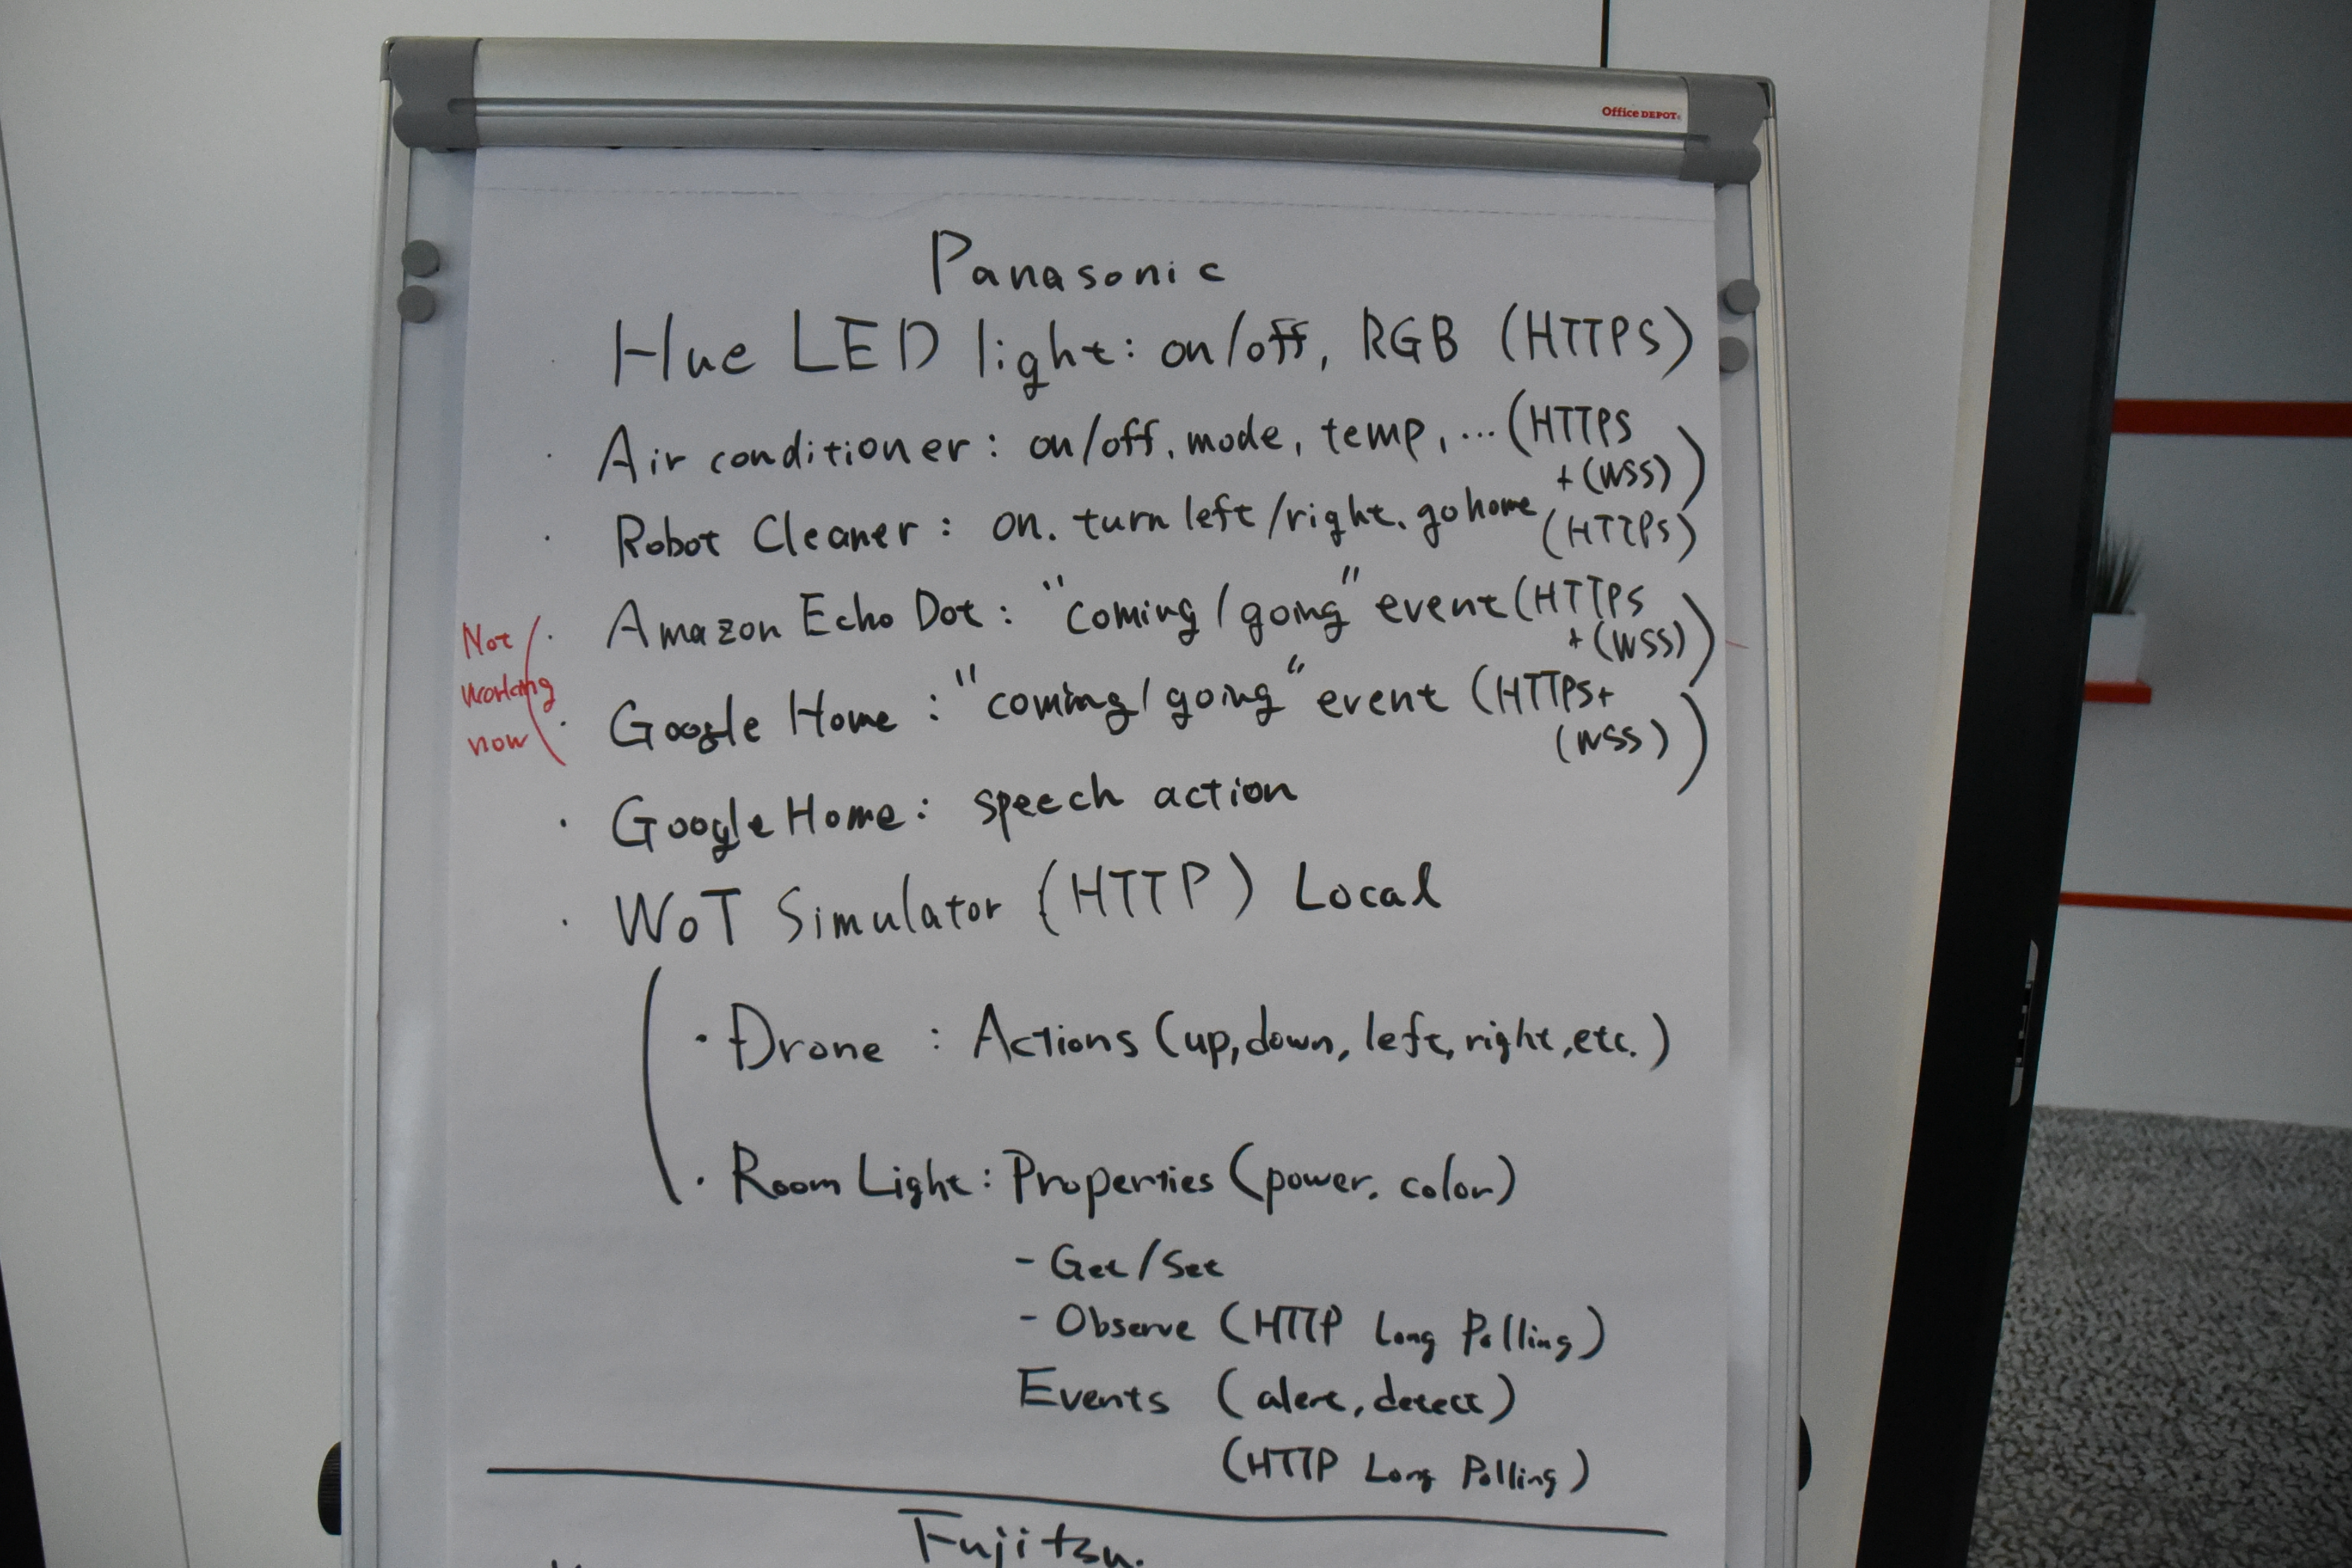 Office DEPOT
Panasonic
· Hue LED light: on/off, RGB (HTTPS)
· Air conditioner: on/off, mode, temp, ... (HTTPS
+ (WSS))
· Robot Cleaner: on. turn left/right. go home (HTTPS)
Not working now
· Amazon Echo Dot: "coming/going" event (HTTPS
+ (WSS))
· Google Home: "coming/going" event (HTTPS+
(WSS))
· Google Home: speech action
· WoT Simulator (HTTP) Local
· Drone: Actions (up, down, left, right, etc.)
· Room Light: Properties (power. color)
- Get/Set
- Observe (HTTP Long Polling)
Events (alert, detect)
(HTTP Long Polling)
Fujitsu.